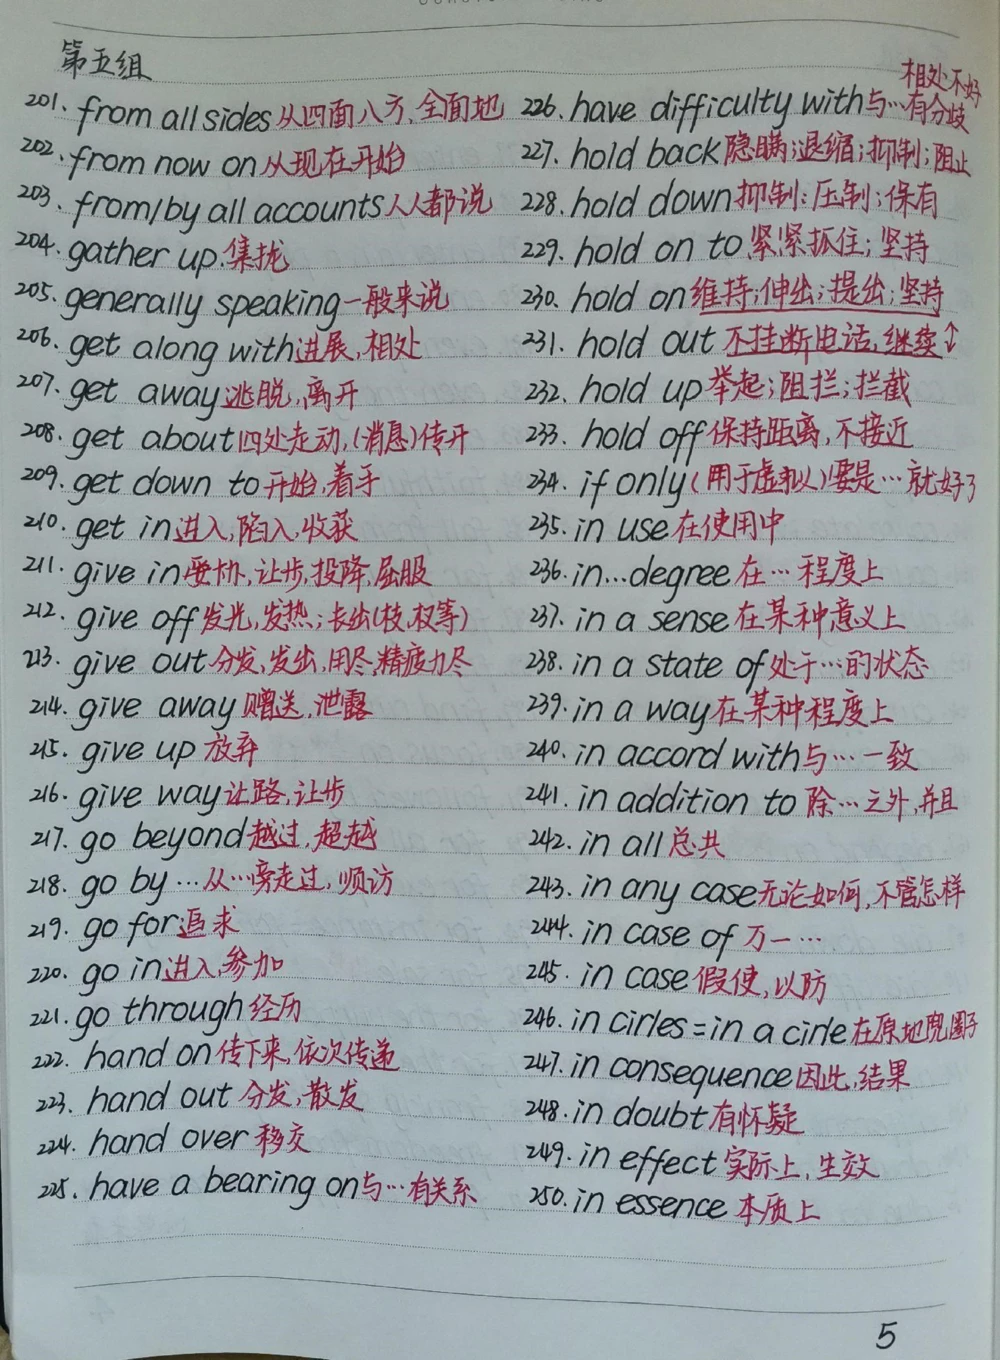 第五组
201. from all sides 从四面八方、全面地
202. from now on 从现在开始
203. from/by all accounts 人人都说
204. gather up. 集拢
205. generally speaking 一般来说
206. get along with 进展, 相处
207. get away 逃脱, 离开
208. get about 四处走动, (消息)传开
209. get down to 开始, 着手
210. get in 进入, 陷入, 收获
211. give in 妥协, 让步, 投降, 屈服
212. give off 发光, 发热; 长出(枝, 杈等)
213. give out 分发, 发出, 用尽, 精疲力尽
214. give away 赠送, 泄露
215. give up 放弃
216. give way 让路, 让步
217. go beyond 越过, 超越
218. go by … 从…旁走过, 顺访
219. go for 追求
220. go in 进入, 参加
221. go through 经历
222. hand on 传下来, 依次传递
223. hand out 分发, 散发
224. hand over 移交
225. have a bearing on 与…有关系
相处不好
226. have difficulty with 与…有分歧
227. hold back 隐瞒; 退缩; 抑制; 阻止
228. hold down 抑制; 压制; 保有
229. hold on to 紧紧抓住; 坚持
230. hold on 维持; 伸出; 提出; 坚持
231. hold out 不挂断电话, 继续↕
232. hold up 举起; 阻拦; 拦截
233. hold off 保持距离, 不接近
234. if only (用于虚拟)要是…就好了
235. in use 在使用中
236. in...degree 在…程度上
237. in a sense 在某种意义上
238. in a state of 处于…的状态
239. in a way 在某种程度上
240. in accord with 与…一致
241. in addition to 除…之外, 并且
242. in all 总共
243. in any case 无论如何, 不管怎样
244. in case of 万一…
245. in case 假使, 以防
246. in cirles = in a cirle 在原地兜圈子
247. in consequence 因此, 结果
248. in doubt 有怀疑
249. in effect 实际上, 生效
250. in essence 本质上
5